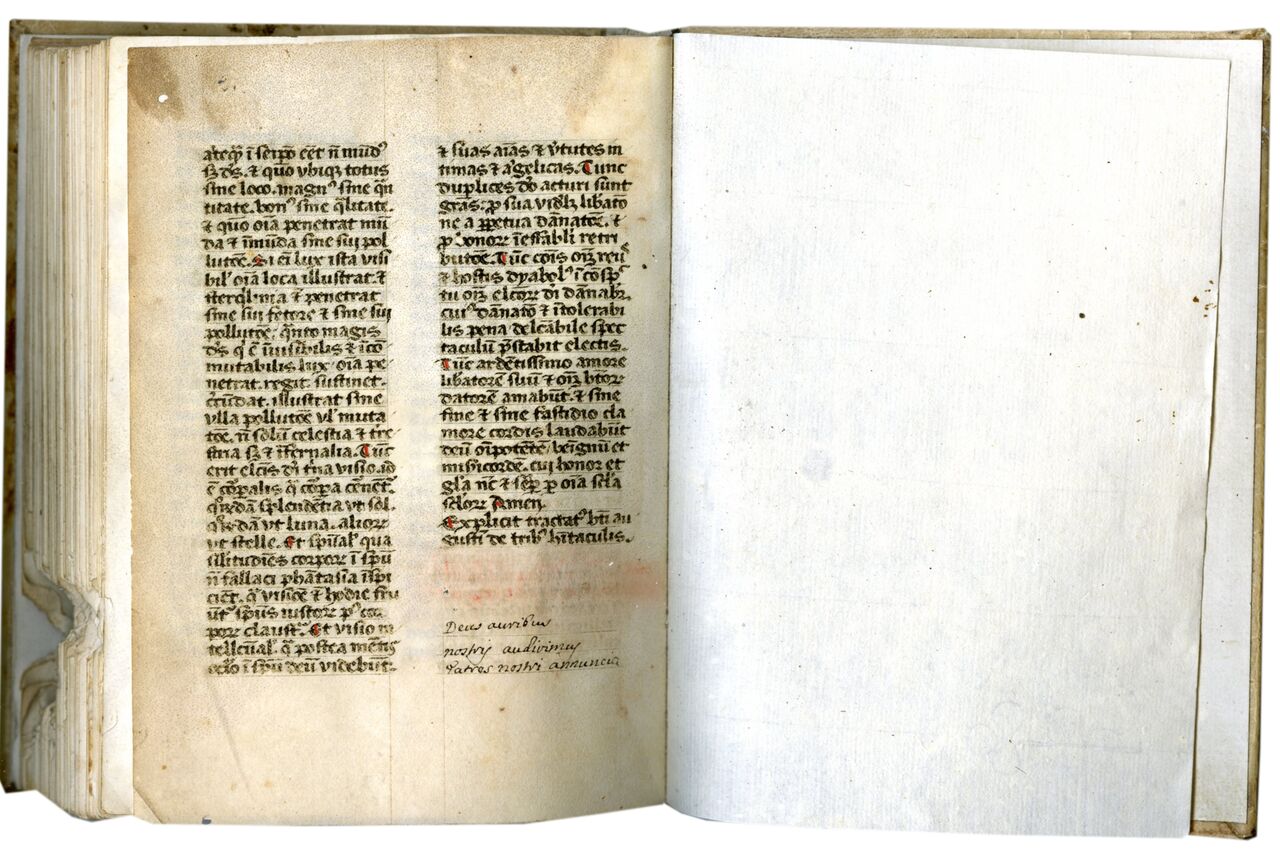 atēqꝫ ī seip̄o cēt n̄ mūdꝰ
sꝫ dꝰ. ⁊ quo vbiqꝫ totus
sine loco. magnꝰ sine q̄n
titate. bonꝰ sine q̄litate.
⁊ quo oīa penetrat mū
da ⁊ īmūda sine sui pol
lutōe. Si eī lux ista visi
bilꝰ oīa loca illustrat. ⁊
sterq̄linia ⁊ penetrat
sine sui fetore ⁊ sine sui
pollutōe. q̄nto magis
dꝰs qͥ ē īuisibilis ⁊ īco
mutabilis lux. oīa pe
netrat. regit. sustinet.
cͥcūdat. illustrat sine
vlla pollutōe vl' muta
tōe. n̄ solū celestia ⁊ tre
stria sꝫ ⁊ īfernalia. Tūc
erit elcīs dī tͥna visio. id
ē corp̄alis qͣ corp̄a cēnent.
q̄r̄dā splendētia vt sol.
q̄r̄dā vt luna. alioꝝ
vt stelle. Et sp̄ualꝰ qua
silitudīes corpoꝝ ī sp̄ū
n̄ fallaci phātasia īspi
ciēt. qͣ visiōe ⁊ hodie fru
ūtꝰ sp̄ūs iustoꝝ pꝰ cor
pore claustrꝰ. Et visio in
tellcūalꝰ. qͣ postea mētꝭ
oclo ī sp̄ū deū videbūt.
⁊ suas aīas ⁊ v̄tutes in
timas ⁊ āgelicas. Tunc
duplices dō acturi sunt
grās. p̄ sua vidꝫ libato
ne a ppetua dānatōe. ⁊
p̄ honore īeffabli retri
butōe. Tūc cōis oīꝫ reuꝰ
⁊ hostis dyabolꝰ ī cōsp̄c
tu oīꝫ elcoꝝ dī dānabꝝ.
cuiꝰ dānato ⁊ ītolerabi
lis pena delcābile spec
taculū p̄stabit electis.
Tūc ardētissimo amore
libatorē suū ⁊ oīꝫ btoꝝ
datorē amabūt. ⁊ sine
fine ⁊ sine fastidio cla
more cordis laudabūt
deū oīpotētē. beignū et
misicordē. cui honor et
gla nc̄ ⁊ semp̄ p oīa scla
scloꝝ Amen.
Explicit tractatꝰ bti au
gusti de tribꝰ hitaculis.
Deus auribus
nostris audivimus
Patres nostri annuncia